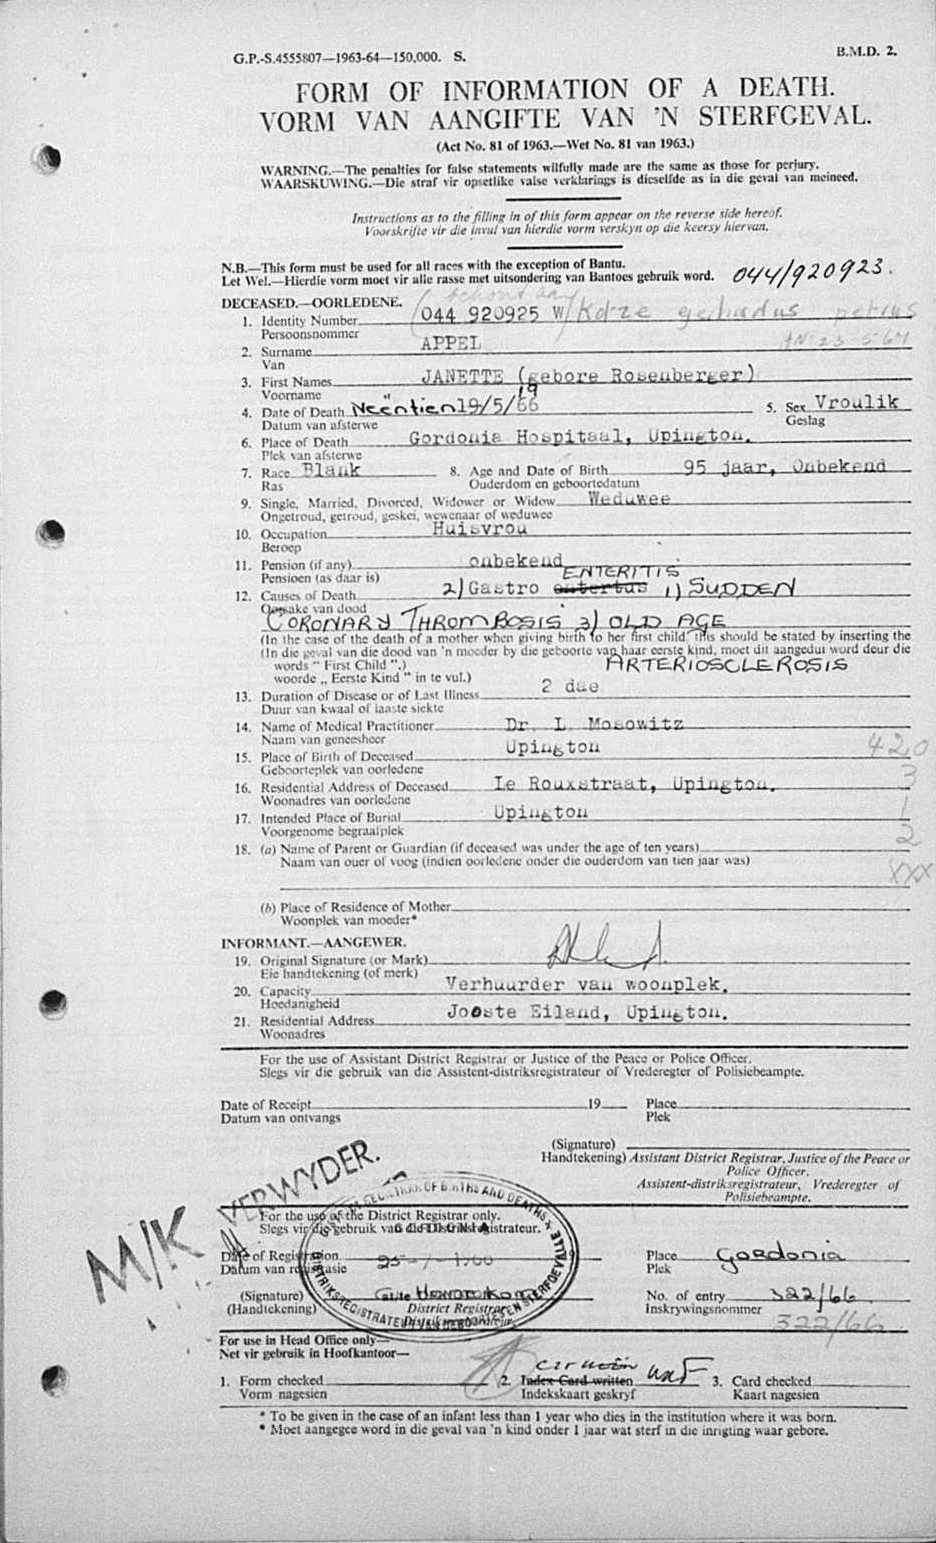 G.P.-S.4555807—1963-64—150,000. S.
B.M.D. 2.
FORM OF INFORMATION OF A DEATH.
VORM VAN AANGIFTE VAN 'N STERFGEVAL.
(Act No. 81 of 1963.—Wet No. 81 van 1963.)
WARNING.—The penalties for false statements wilfully made are the same as those for perjury.
WAARSKUWING.—Die straf vir opsetlike valse verklarings is dieselfde as in die geval van meineed.
Instructions as to the filling in of this form appear on the reverse side hereof.
Voorskrifte vir die invul van hierdie vorm verskyn op die keersy hiervan.
N.B.—This form must be used for all races with the exception of Bantu.
Let Wel.—Hierdie vorm moet vir alle rasse met uitsondering van Bantoes gebruik word. 044/920923.
DECEASED.—OORLEDENE. behoort aan
1. Identity Number 044 920925 W/Kotze gerhardus petrus
Persoonsnommer
2. Surname APPEL
Van
3. First Names JANETTE (gebore Rosenberger)
Voorname
4. Date of Death Neentien 19/5/66 5. Sex Vroulik
Datum van afsterwe Geslag
6. Place of Death Gordonia Hospitaal, Upington.
Plek van afsterwe
7. Race Blank 8. Age and Date of Birth 95 jaar, Onbekend
Ras Ouderdom en geboortedatum
9. Single, Married, Divorced, Widower or Widow Weduwee
Ongetroud, getroud, geskei, wewenaar of weduwee
10. Occupation Huisvrou
Beroep
11. Pension (if any) onbekend
Pensioen (as daar is) ENTERITIS
12. Causes of Death 2) Gastro entertus 1) SUDDEN
Oorsake van dood
CORONARY THROMBOSIS 3) OLD AGE
(In the case of the death of a mother when giving birth to her first child, this should be stated by inserting the
(In die geval van die dood van 'n moeder by die geboorte van haar eerste kind, moet dit aangedui word deur die
words " First Child ".) ARTERIOSCLEROSIS
woorde „ Eerste Kind " in te vul.)
13. Duration of Disease or of Last Illness 2 dae
Duur van kwaal of laaste siekte
14. Name of Medical Practitioner Dr. L Mosowitz
Naam van geneesheer
15. Place of Birth of Deceased Upington 420
Geboorteplek van oorledene
16. Residential Address of Deceased Le Rouxstraat, Upington. 3
Woonadres van oorledene
17. Intended Place of Burial Upington 1
Voorgenome begraafplek
18. (a) Name of Parent or Guardian (if deceased was under the age of ten years) 2
Naam van ouer of voog (indien oorledene onder die ouderdom van tien jaar was)
XXX
(b) Place of Residence of Mother
Woonplek van moeder*
INFORMANT.—AANGEWER.
19. Original Signature (or Mark)
Eie handtekening (of merk)
20. Capacity Verhuurder van woonplek.
Hoedanigheid
21. Residential Address Jooste Eiland, Upington.
Woonadres
For the use of Assistant District Registrar or Justice of the Peace or Police Officer.
Slegs vir die gebruik van die Assistent-distriksregistrateur of Vrederegter of Polisiebeampte.
Date of Receipt 19 Place
Datum van ontvangs Plek
(Signature)
Handtekening) Assistant District Registrar, Justice of the Peace or
Police Officer.
Assistent-distriksregistrateur, Vrederegter of
Polisiebeampte.
M/K VERWYDER.
For the use of the District Registrar only.
Slegs vir die gebruik van die Distriksregistrateur.
Date of Registration Place Gordonia
Datum van registrasie Plek
(Signature) No. of entry 322/66
(Handtekening) District Registrar Inskrywingsnommer
322/66
For use in Head Office only—
Net vir gebruik in Hoofkantoor—
1. Form checked 2. Index Card written 3. Card checked
Vorm nagesien Indekskaart geskryf Kaart nagesien
* To be given in the case of an infant less than 1 year who dies in the institution where it was born.
* Moet aangegee word in die geval van 'n kind onder 1 jaar wat sterf in die inrigting waar gebore.